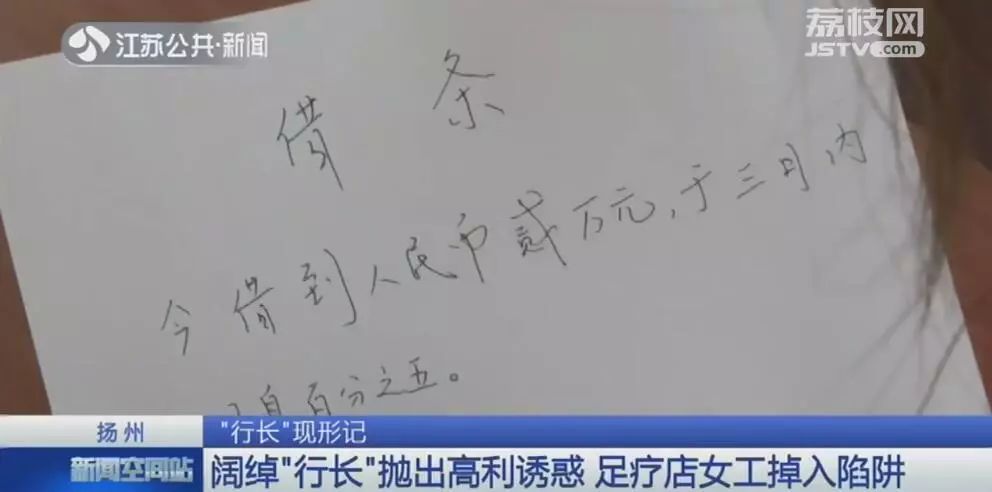 江苏公共·新闻
荔枝网
JSTV.com
借条
今借到人民币贰万元，于三月内
息百分之五。
扬州
"行长"现形记
新闻空间站
阔绰"行长"抛出高利诱惑 足疗店女工掉入陷阱